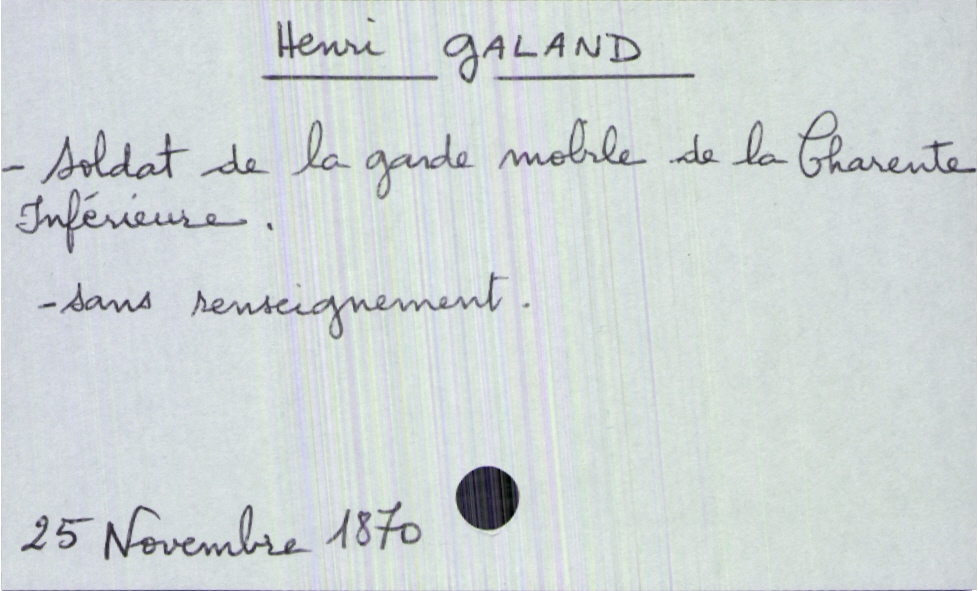 Henri GALAND
- Soldat de la garde mobile de la Charente
Inférieure.
- sans renseignement.
25 Novembre 1870